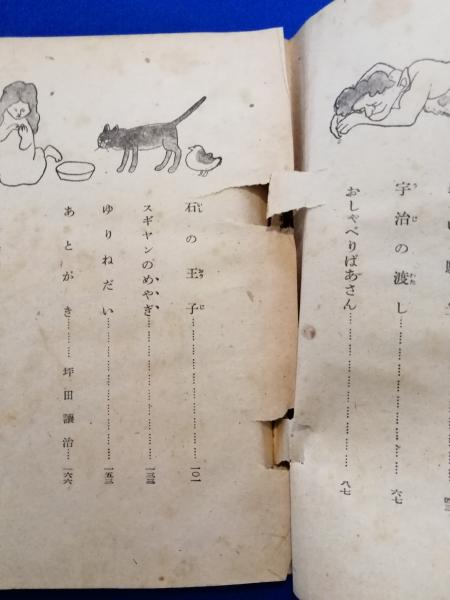 宇治の渡し……………………六七
おしゃべりばあさん……………………八七
石の王子……………………一〇一
スギヤンのめやぎ……………………一三三
ゆりねだい……………………一五三
あとがき………坪田譲治……一六六